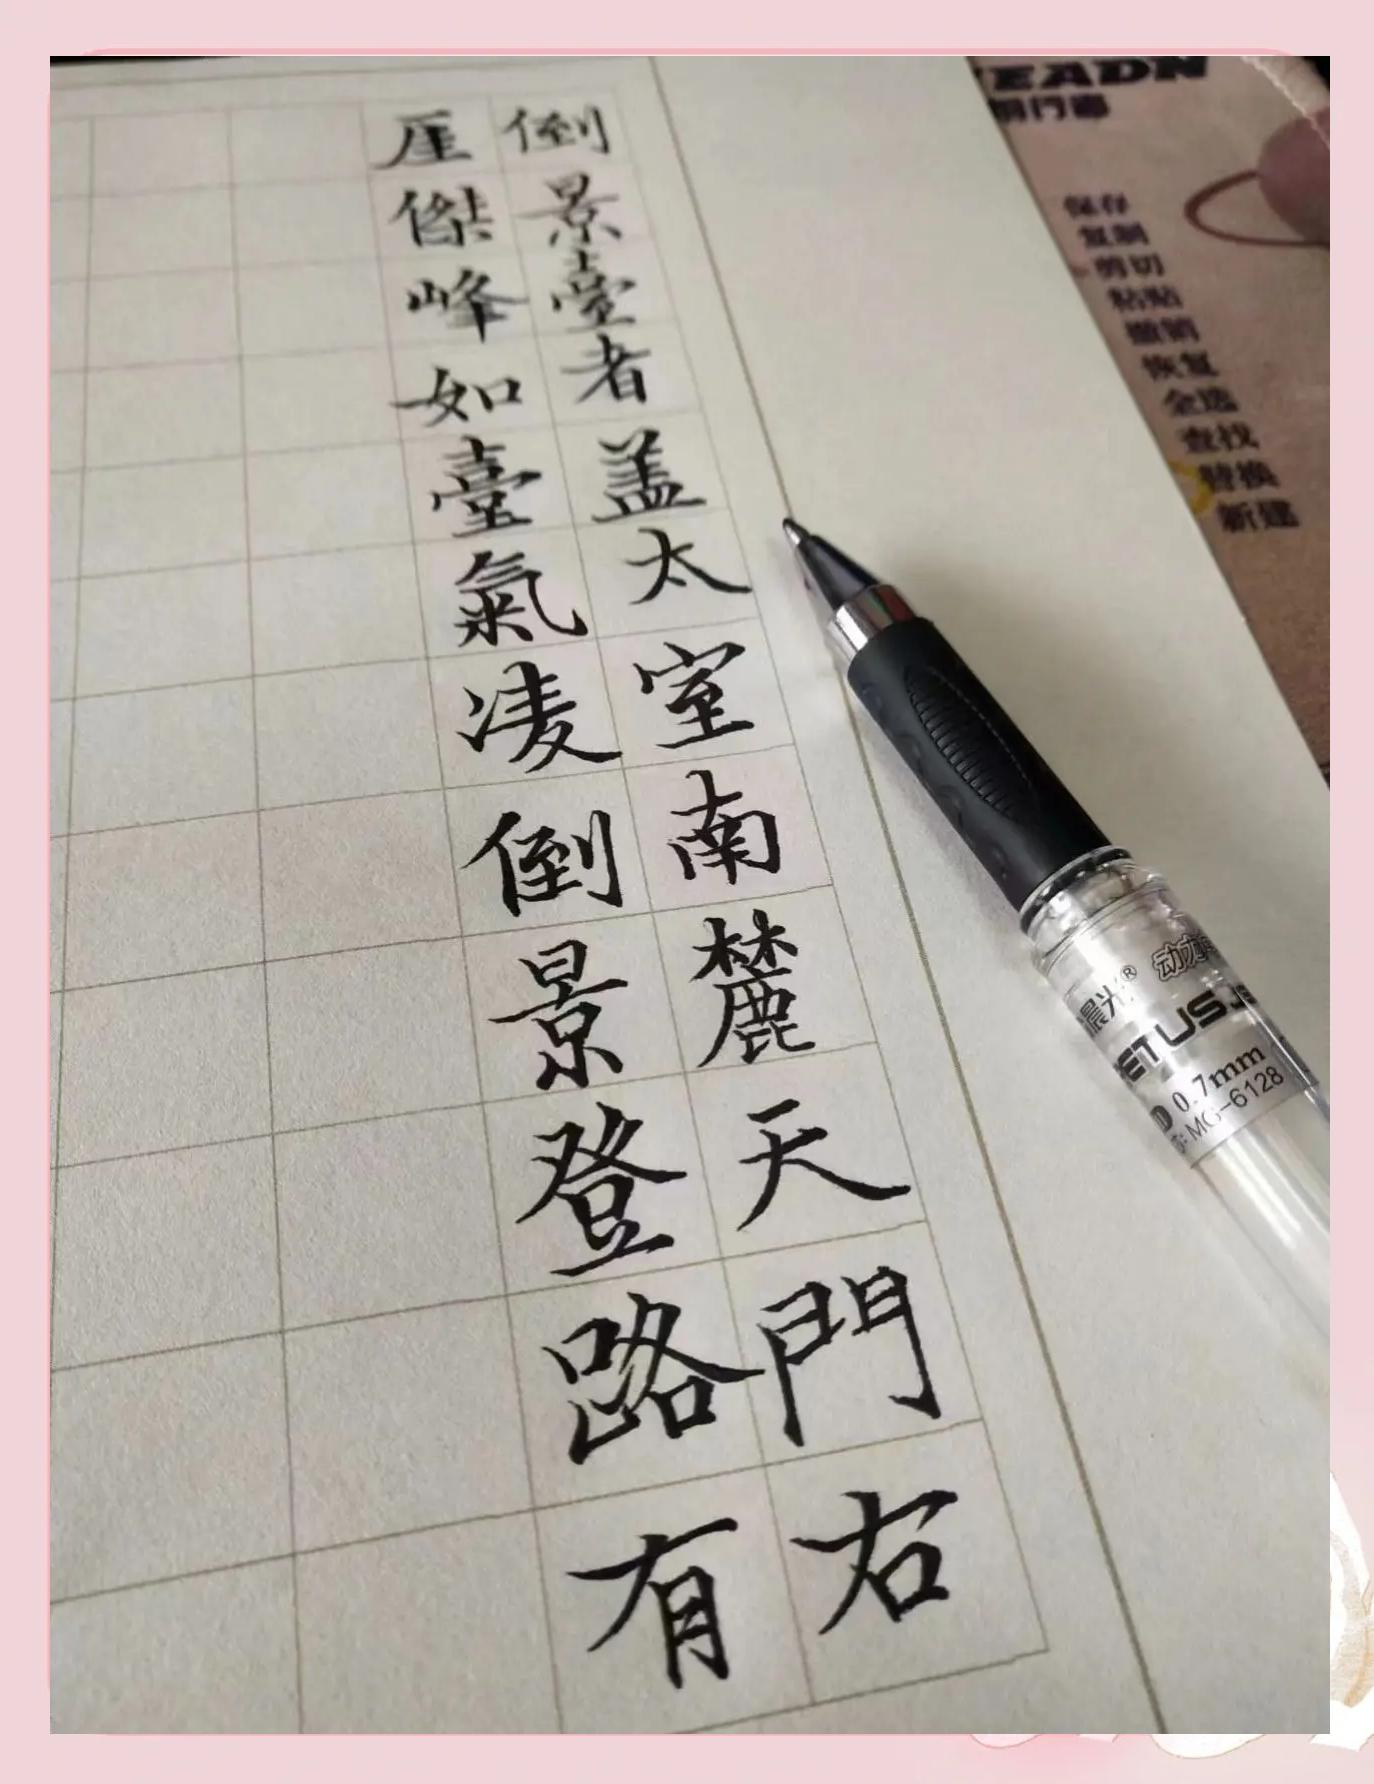 倒景臺者盖太室南麓天門右
厓傑峰如臺氣凌倒景登路有
EADN
保存
复制
剪切
粘贴
撤销
恢复
全选
查找
替换
新建
晨光®
动力
ETUS
0.7mm
MG-6128